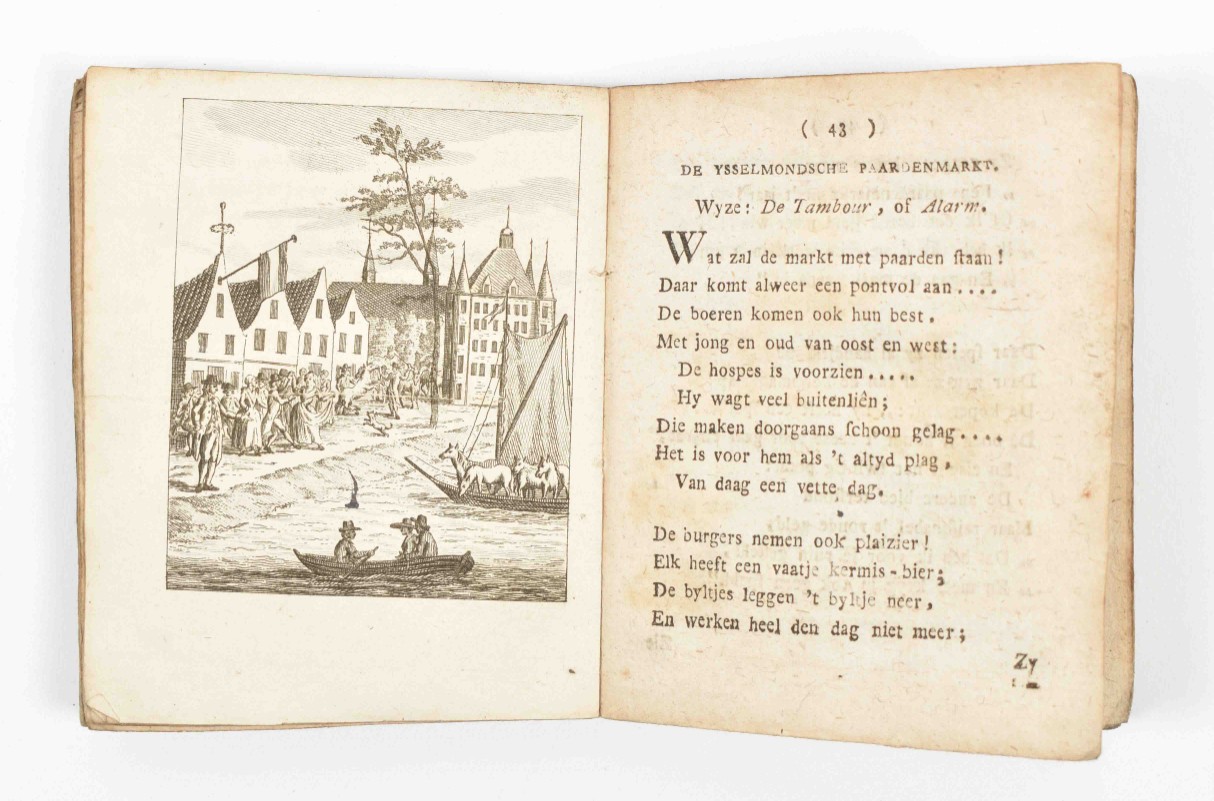 ( 43 )
DE YSSELMONDSCHE PAARDENMARKT.
Wyze: De Tambour, of Alarm.
Wat zal de markt met paarden ſtaan!
Daar komt alweer een pontvol aan....
De boeren komen ook hun best.
Met jong en oud van oost en west:
De hospes is voorzien.....
Hy wagt veel buitenliên;
Die maken doorgaans ſchoon gelag....
Het is voor hem als 't altyd plag,
Van daag een vette dag.
De burgers nemen ook plaizier!
Elk heeft een vaatje kermis-bier;
De byltjes leggen 't byltje neer,
En werken heel den dag niet meer;
Zy